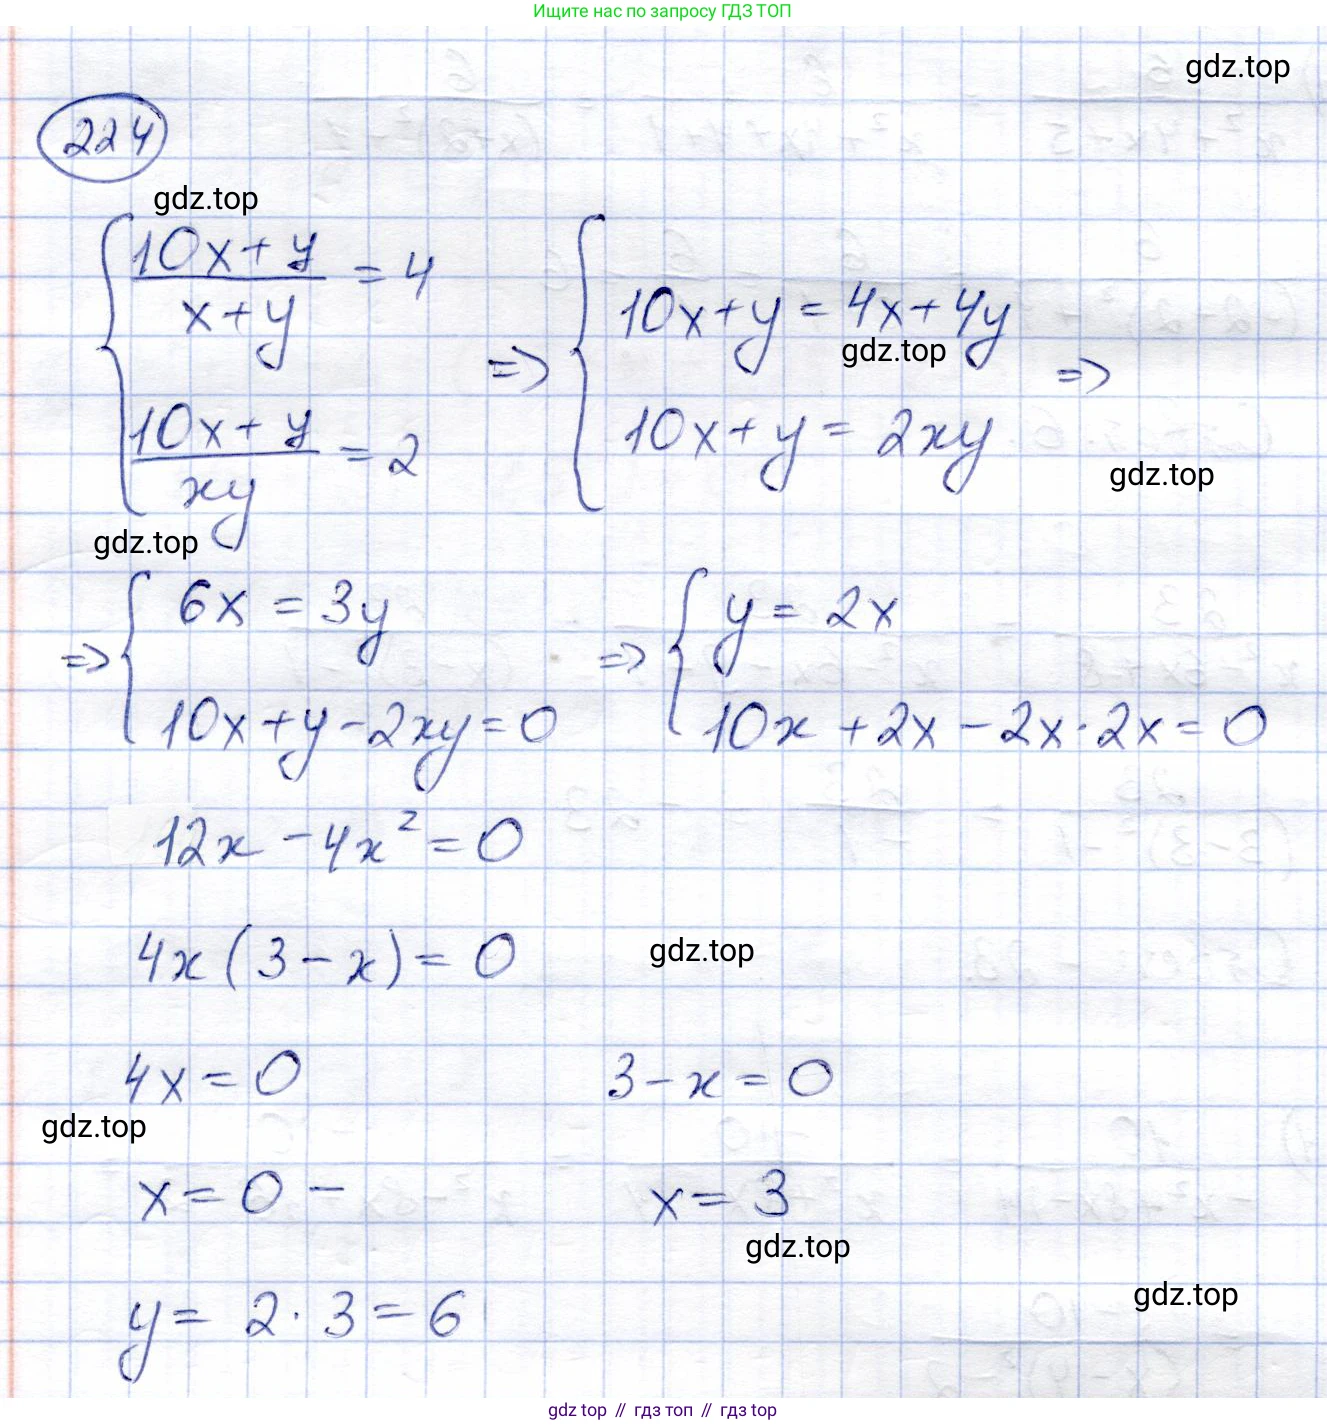 Ищите нас по запросу ГДЗ ТОП
gdz.top
224
gdz.top
{ (10x+y)/(x+y) = 4 => { 10x+y = 4x+4y =>
gdz.top
{ (10x+y)/(xy) = 2 { 10x+y = 2xy
gdz.top
gdz.top
=> { 6x = 3y => { y = 2x
{ 10x+y-2xy=0 { 10x+2x-2x·2x=0
12x-4x²=0
4x(3-x)=0
gdz.top
4x=0 3-x=0
gdz.top
x=0 - x=3
gdz.top
gdz.top
y= 2·3=6
gdz top // гдз топ // gdz top